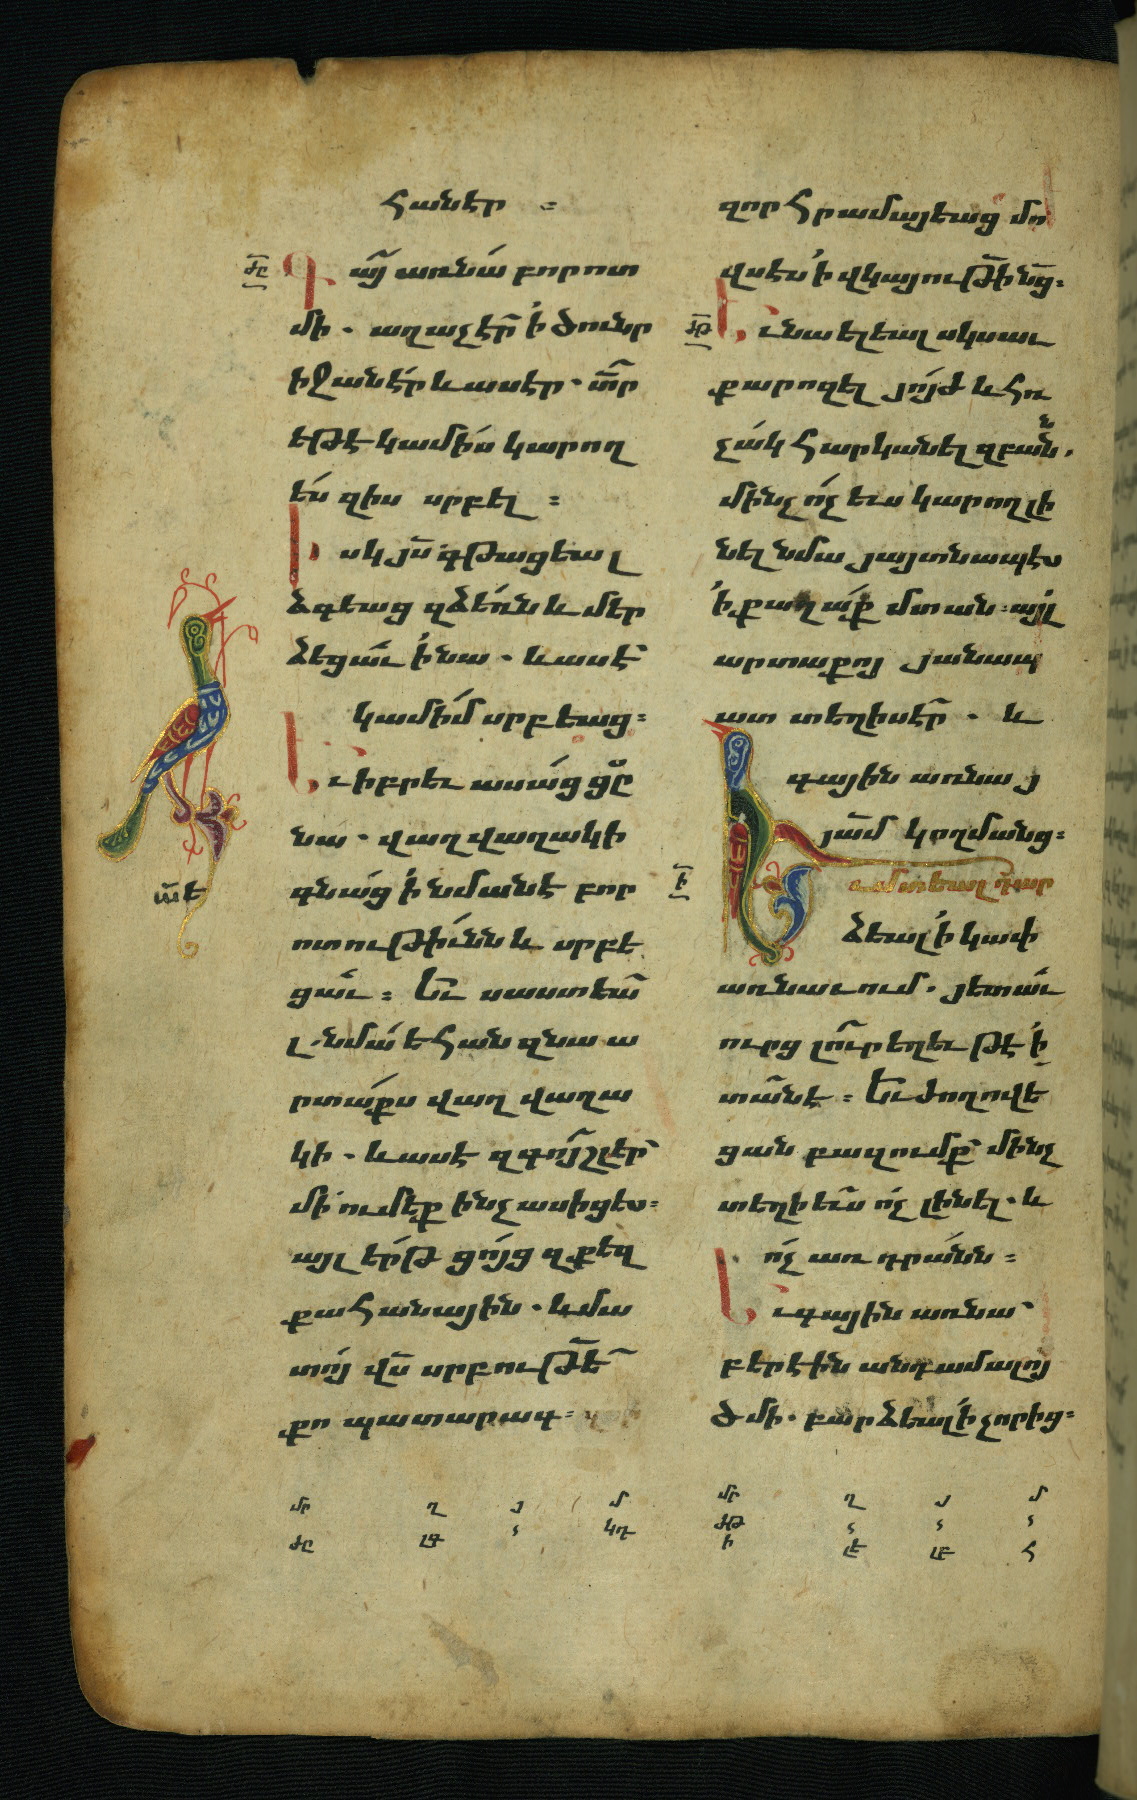 հանէր :
ԺԸ
Գայ առ նա բորոտ
մի . աղաչէր ՛ի ծունր
իջանէր և ասէր . տր
եթէ կամիս կարող
ես զիս սրբել :
Իսկ յս գթացեալ
ձգեաց զձեռն և մեր
ձեցաւ ՛ի նա . և ասէ
կամիմ սրբեաց :
Եւ իբրև ասաց ցը
նա . վաղվաղակի
գնաց ՛ի նմանէ բոր
ոտութիւնն և սրբե
ցաւ : Եւ սաստեա
լ նմա եհան զնա ա
րտաքս վաղվաղա
կի . և ասէ զգոյշ լեր
մի ումեք ինչ ասիցես :
այլ երթ ցոյց զքեզ
քահանային . և մա
տոյ վս սրբութե
քո պատարագ :
զոր հրամայեաց մո
վսէս ՛ի վկայութի նց :
ԺԹ
Եւ նա ելեալ սկսաւ
քարոզել յոյժ և հռ
չակ հարկանել զբանն .
մինչ ոչ ևս կարող լի
նել նմա յայտնապէս
՛ի քաղաք մտան : այլ
արտաքոյ յանապ
ատ տեղիս էր . և
գային առ նա յ
յամ կողմանց :
Ի
Եւ մտեալ դար
ձեալ ՛ի կափ
առնաւում . յետ աւ
ուրց լուր եղև թէ ՛ի
տանէ : Եւ ժողովե
ցան բազումք մինչ
տեղի ևս ոչ լինել . և
ոչ առ դրանն :
Եւ գային առ նա
բերէին անդամալոյ
ծ մի . բարձեալ ՛ի չորից :
մր ղ յ մ
ԺԸ ԿԴ
մր ղ յ մ
ԺԹ
Ի ԼԷ ԼԷ Հ